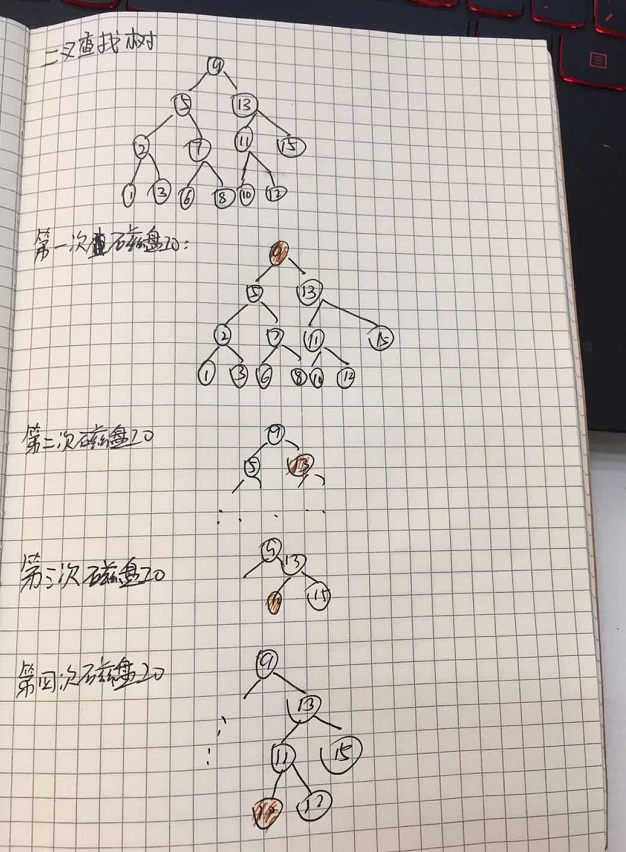 二叉查找树
9
5 13
2 7 11 15
1 3 6 8 10 12
第一次磁盘IO:
9
5 13
2 7 11 15
1 3 6 8 10 12
第二次磁盘IO
9
5 13
第三次磁盘IO
9 13
15
第四次磁盘IO
9
13
11 15
10 12